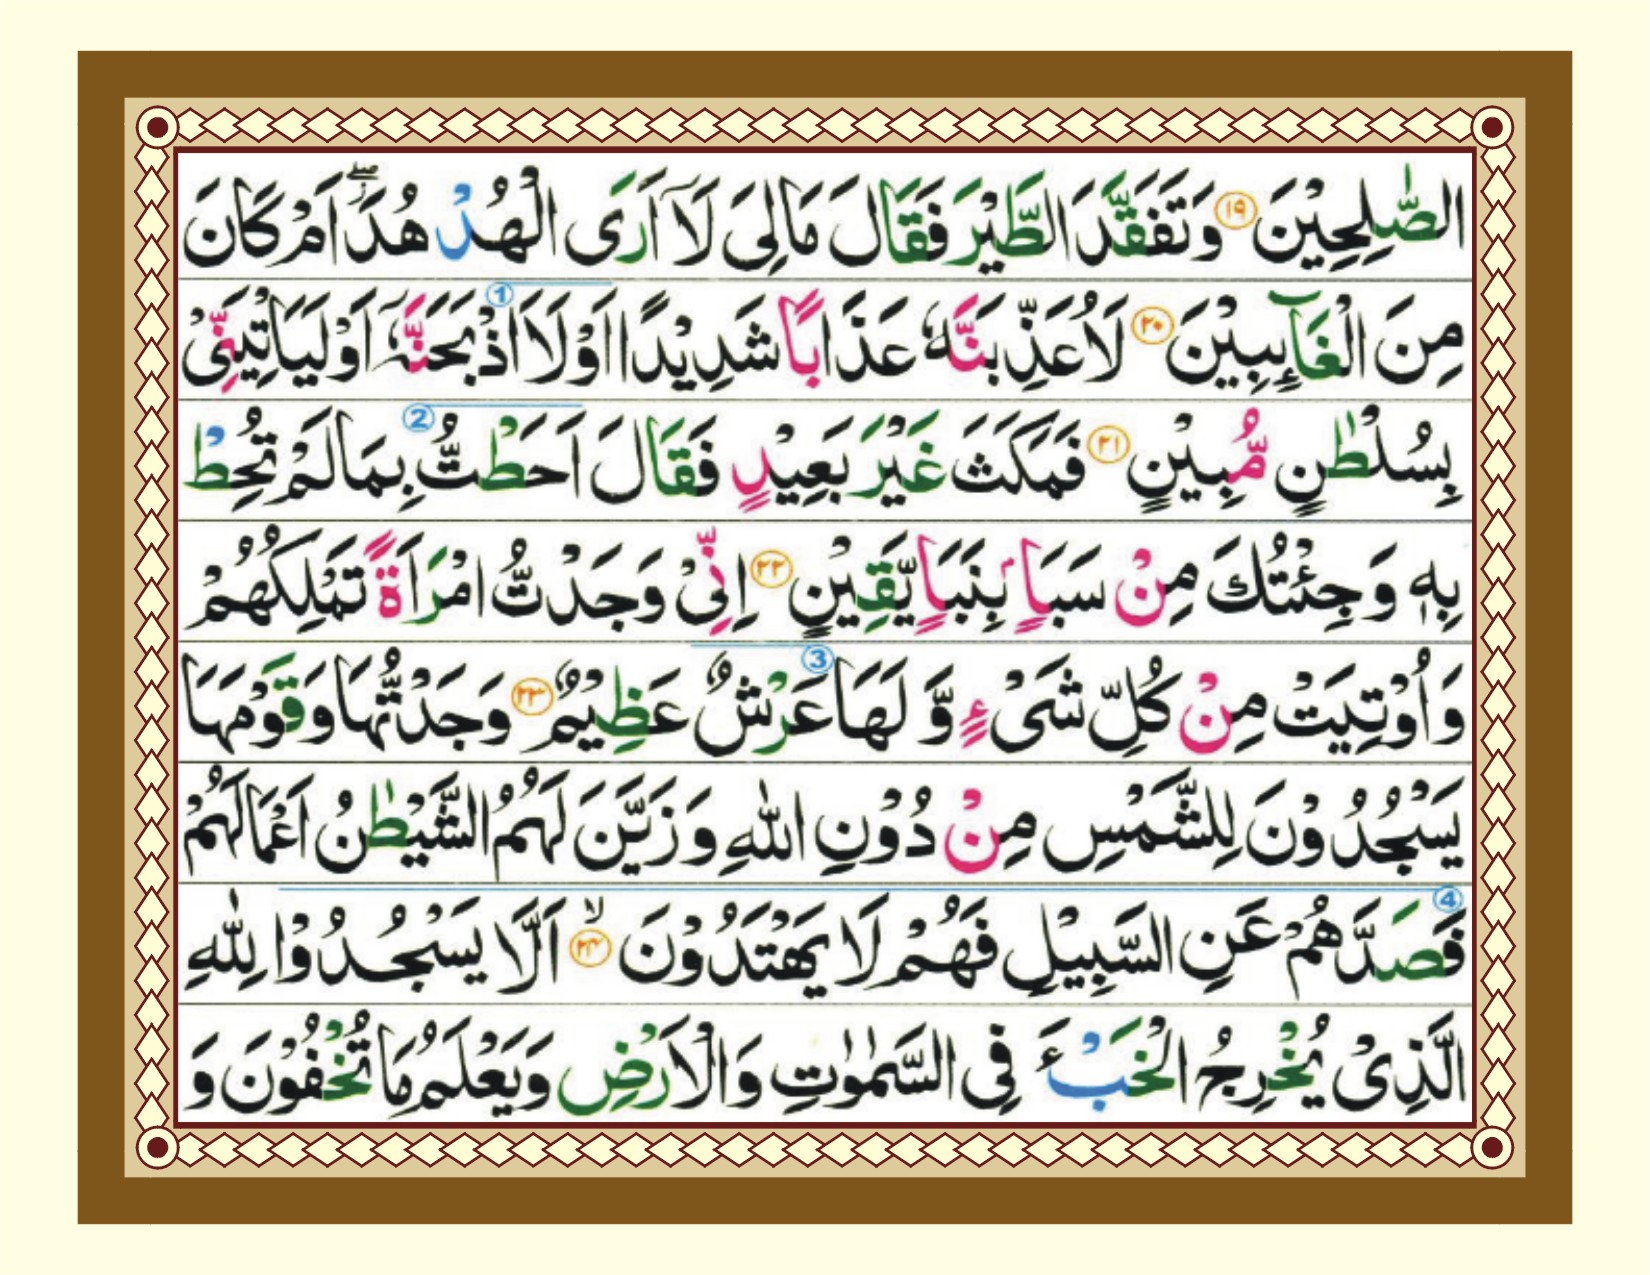 الصّٰلِحِيْنَ ﴿۱۹﴾ وَتَفَقَّدَ الطَّيْرَ فَقَالَ مَا لِيَ لَاۤ اَرَى الْهُدْهُدَ ۖۗ اَمْ كَانَ
مِنَ الْغَآىِٕبِيْنَ ﴿۲۰﴾ لَاُعَذِّبَنَّهٗ عَذَابًا شَدِيْدًا اَوْ لَاۡاَذْبَحَنَّهٗۤ اَوْ لَيَاْتِيَنِّيْ ①
بِسُلْطٰنٍ مُّبِيْنٍ ﴿۲۱﴾ فَمَكَثَ غَيْرَ بَعِيْدٍ فَقَالَ اَحَطْتُّ بِمَا لَمْ تُحِطْ ②
بِهٖ وَجِئْتُكَ مِنْ سَبَاٍۭ بِنَبَاٍ يَّقِيْنٍ ﴿۲۲﴾ اِنِّيْ وَجَدْتُّ امْرَاَةً تَمْلِكُهُمْ
وَاُوْتِيَتْ مِنْ كُلِّ شَيْءٍ وَّ لَهَا عَرْشٌ عَظِيْمٌ ﴿۲۳﴾ وَجَدْتُّهَا وَقَوْمَهَا ③
يَسْجُدُوْنَ لِلشَّمْسِ مِنْ دُوْنِ اللّٰهِ وَزَيَّنَ لَهُمُ الشَّيْطٰنُ اَعْمَالَهُمْ
فَصَدَّهُمْ عَنِ السَّبِيْلِ فَهُمْ لَا يَهْتَدُوْنَ ۙ﴿۲۴﴾ اَلَّا يَسْجُدُوْا لِلّٰهِ ④
الَّذِيْ يُخْرِجُ الْخَبْءَ فِي السَّمٰوٰتِ وَالْاَرْضِ وَيَعْلَمُ مَا تُخْفُوْنَ وَ